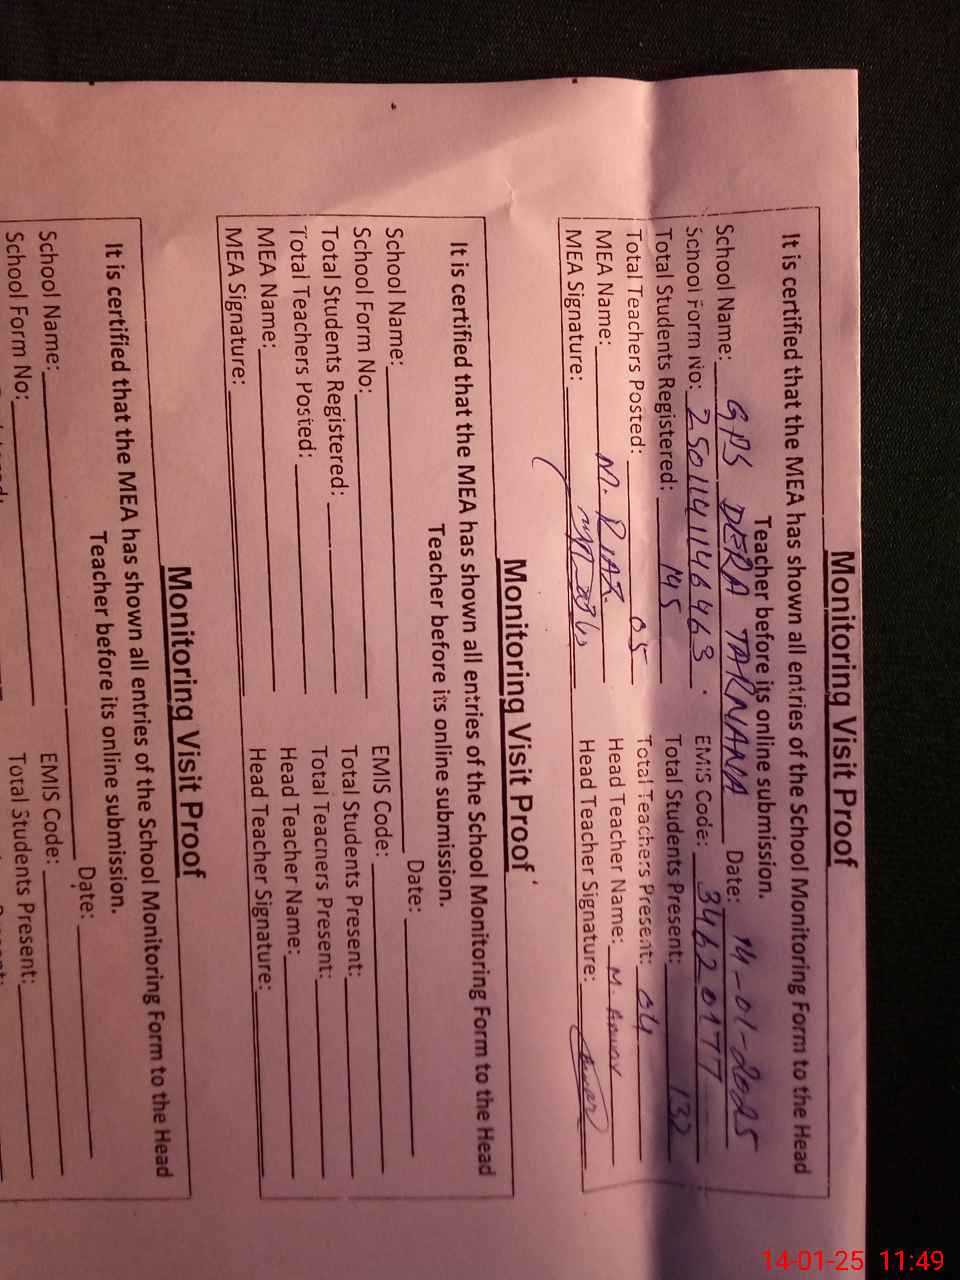 Monitoring Visit Proof
It is certified that the MEA has shown all entries of the School Monitoring Form to the Head
Teacher before its online submission.
School Name: GPS DERA TARNANA Date: 14-01-2025
School Form No: 2501141146463. EMIS Code: 34620177
Total Students Registered: 145 Total Students Present: 132
Total Teachers Posted: 05 Total Teachers Present: 04
MEA Name: M. RIAZ Head Teacher Name: M. Anwar
MEA Signature: Head Teacher Signature: Anwar
Monitoring Visit Proof
It is certified that the MEA has shown all entries of the School Monitoring Form to the Head
Teacher before its online submission.
School Name: Date:
School Form No: EMIS Code:
Total Students Registered: Total Students Present:
Total Teachers Posted: Total Teachers Present:
MEA Name: Head Teacher Name:
MEA Signature: Head Teacher Signature:
Monitoring Visit Proof
It is certified that the MEA has shown all entries of the School Monitoring Form to the Head
Teacher before its online submission.
School Name: Date:
School Form No: EMIS Code:
Total Students Present:
14-01-25 11:49